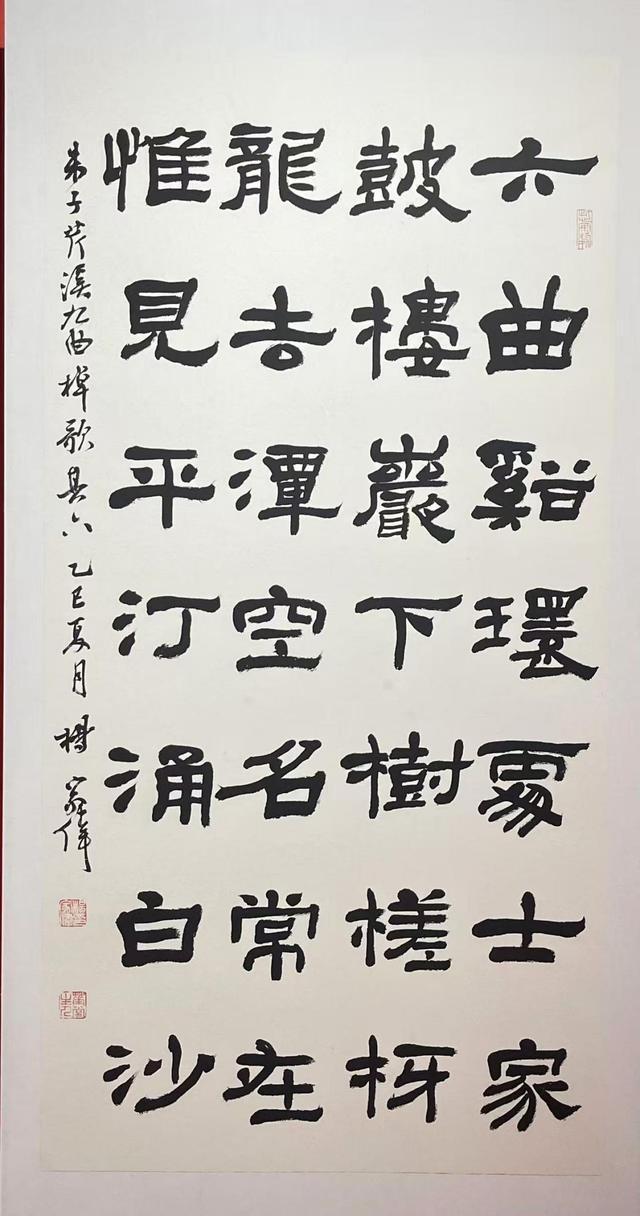 六曲谿環處士家
鼓樓巖下樹槎枒
龍去潭空名常在
惟見平汀涌白沙
朱子芹溪九曲棹歌其六 乙巳夏月 楊家偉